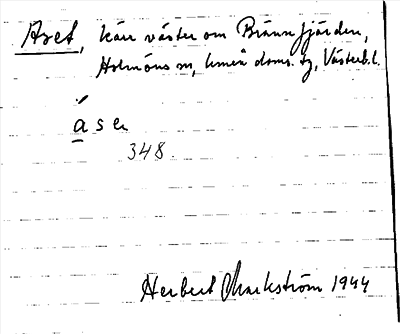 Aset, kärr väster om Brännfjärden,
Holmöns sn, Umeå doms. tg, Västerb. l.
áse
348.
Herbert Markström 1944